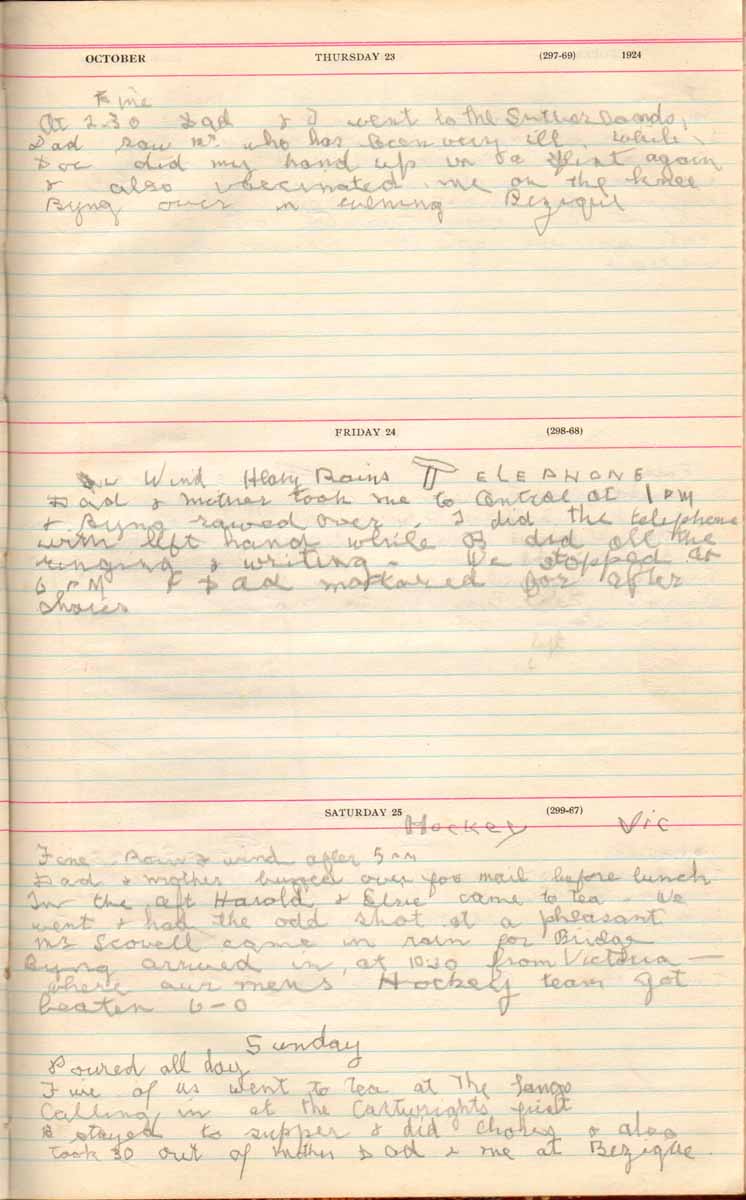 OCTOBER THURSDAY 23 (297-69) 1924
Fine
At 2.30 Dad & I went to the Sutherlands,
Dad saw Mr who has been very ill, while
Doc did my hand up in a splint again
& also vaccinated me on the knee
Byng over in evening Bezique
FRIDAY 24 (298-68)
Wind Heavy Rains TELEPHONE
Dad & mother took me to Central at 1 PM
& Byng rowed over. I did the telephone
with left hand while B did all the
ringing & writing. We stopped at
6 PM & Dad motored for after
chores
SATURDAY 25 (299-67)
Hockey Vic
Fine Rain & wind after 5 PM
Dad & mother buzzed over for mail before lunch
In the aft Harold & Elsie came to tea. We
went & had the odd shot at a pheasant
Mr Scovell came in rain for Bridge
Byng arrived in, at 10.30 from Victoria —
where our mens Hockey team got
beaten 6-0
Sunday
Poured all day
Five of us went to tea at The
Calling in at the Cartwrights first
B stayed to supper & did chores & also
took 30 out of mother Dad & me at Bezique.